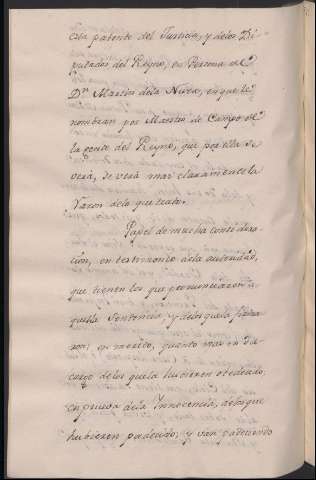 esta patente del Justicia, y delos Di-
putados del Reyno, en Persona de
Dn Martin dela Nuza, en que le
nombran por Maestro de Campo de
la gente del Reyno, que por ella se
verá, se verá mas claramente la
razon dela que trata.
Papel de mucha considera-
cion, en testimonio dela autoridad,
que tienen los que pronunciaron a-
quella Sentencia, y delos que la firma-
ron; en merito, quanto mas en des-
cargo delos que la hubieren obedecido:
en prueva dela Innocencia, delos que
hubieren padecido, y van padeciendo